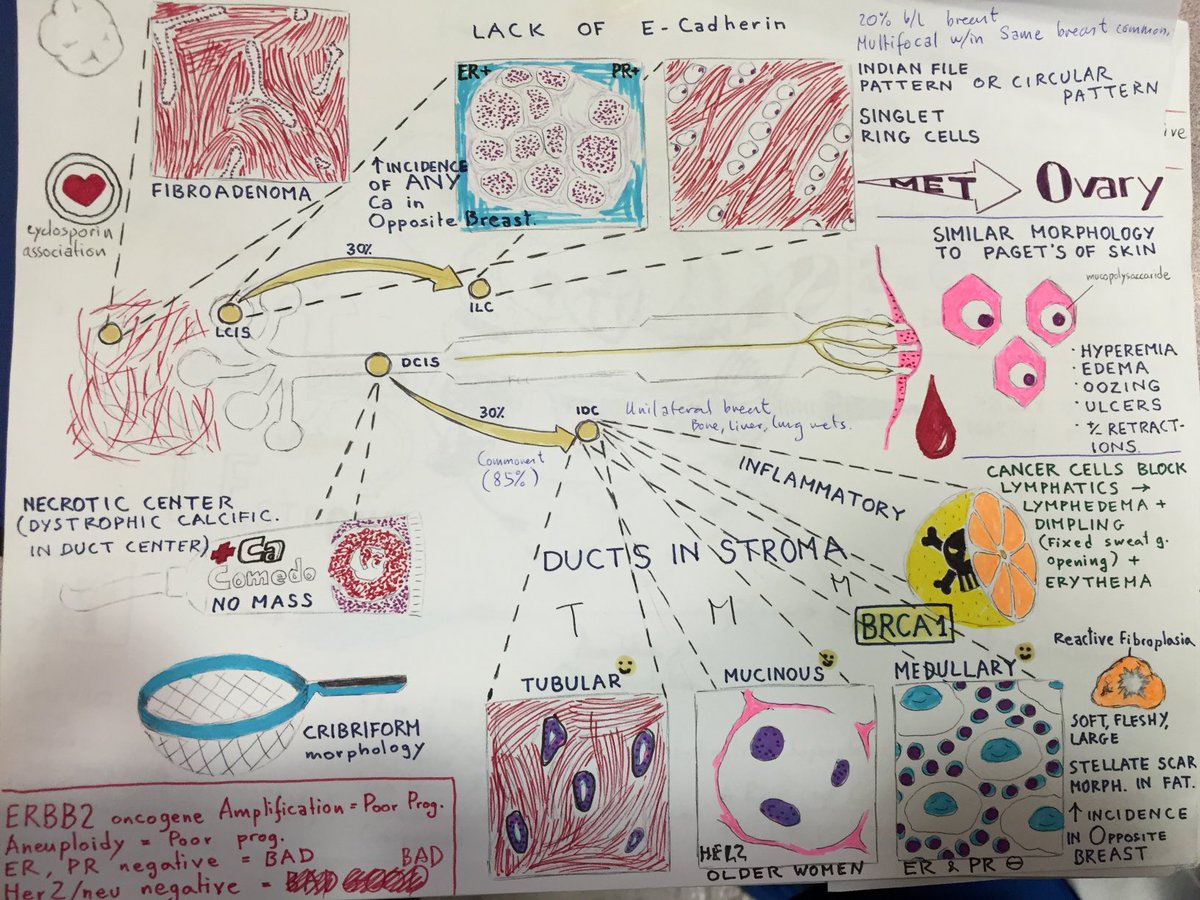 LACK OF E-Cadherin
20% b/L breast
Multifocal w/in Same breast common,
INDIAN FILE
PATTERN OR CIRCULAR
PATTERN
SINGLET
RING CELLS
ive
MET
Ovary
FIBROADENOMA
cyclosporin
association
↑ INCIDENCE
OF ANY
Ca in
Opposite Breast.
ER+
PR+
30%
LCIS
ILC
DCIS
30%
IDC
Commonest
(85%)
Unilateral breast
Bone, Liver, Lung mets.
SIMILAR MORPHOLOGY
TO PAGET'S OF SKIN
mucopolysaccaride
· HYPEREMIA
· EDEMA
· OOZING
· ULCERS
· +/- RETRACT-
IONS.
NECROTIC CENTER
(DYSTROPHIC CALCIFIC.
IN DUCT CENTER)
+Ca
Comedo
NO MASS
CRIBRIFORM
morphology
INFLAMMATORY
CANCER CELLS BLOCK
LYMPHATICS →
LYMPHEDEMA +
DIMPLING
(Fixed sweat g.
opening) +
ERYTHEMA
DUCTS IN STROMA
T
M
M
BRCA1
TUBULAR
MUCINOUS
MEDULLARY
HER2
OLDER WOMEN
ER & PR ⊖
Reactive Fibroplasia
SOFT, FLESHY,
LARGE
STELLATE SCAR
MORPH. IN FAT.
↑ INCIDENCE
IN OPPOSITE
BREAST
ERBB2 oncogene Amplification = Poor Prog.
Aneuploidy = Poor prog.
ER, PR negative = BAD
Her2/neu negative = BAD